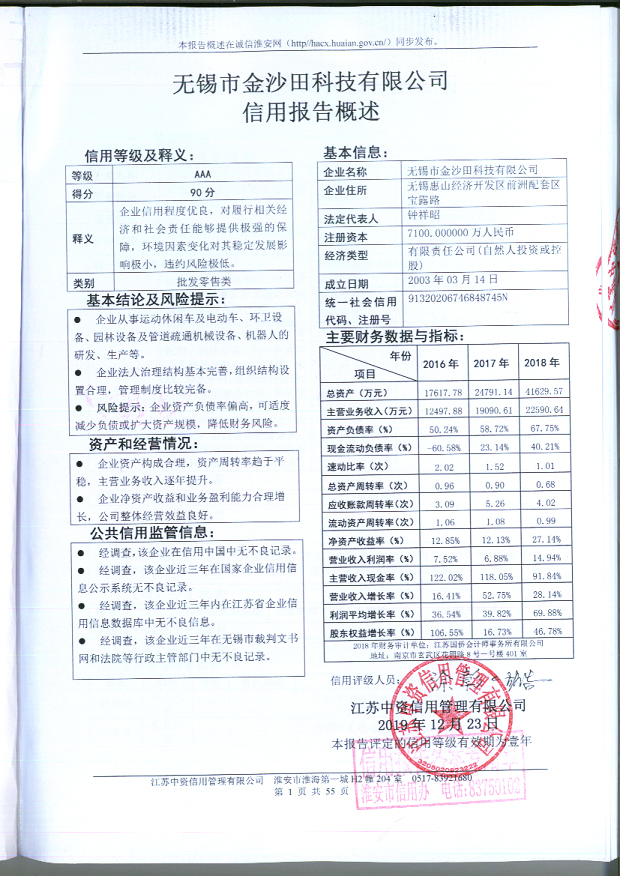 本报告概述在诚信淮安网（http//hacx.huaian.gov.cn/）同步发布。
无锡市金沙田科技有限公司
信用报告概述
信用等级及释义：
等级 AAA
得分 90分
释义
企业信用程度优良，对履行相关经
济和社会责任能够提供极强的保
障，环境因素变化对其稳定发展影
响极小，违约风险极低。
类别 批发零售类
基本结论及风险提示：
● 企业从事运动休闲车及电动车、环卫设
备、园林设备及管道疏通机械设备、机器人的
研发、生产等。
● 企业法人治理结构基本完善，组织结构设
置合理，管理制度比较完备。
● 风险提示：企业资产负债率偏高，可适度
减少负债或扩大资产规模，降低财务风险。
资产和经营情况：
● 企业资产构成合理，资产周转率趋于平
稳，主营业务收入逐年提升。
● 企业净资产收益和业务盈利能力合理增
长，公司整体经营效益良好。
公共信用监管信息：
● 经调查，该企业在信用中国中无不良记录。
● 经调查，该企业近三年在国家企业信用信
息公示系统无不良记录。
● 经调查，该企业近三年内在江苏省企业信
用信息数据库中无不良信息。
● 经调查，该企业近三年在无锡市裁判文书
网和法院等行政主管部门中无不良记录。
基本信息：
企业名称 无锡市金沙田科技有限公司
企业住所 无锡惠山经济开发区前洲配套区
宝露路
法定代表人 钟祥昭
注册资本 7100.000000 万人民币
经济类型 有限责任公司(自然人投资或控
股)
成立日期 2003 年 03 月 14 日
统一社会信用 91320206746848745N
代码、注册号
主要财务数据与指标：
年份
项目
2016 年 2017 年 2018 年
总资产（万元） 17617.78 24791.14 41629.57
主营业务收入(万元) 12497.88 19090.61 22590.64
资产负债率（%） 50.24% 58.72% 67.75%
现金流动负债率（%） -60.58% 23.14% 40.21%
速动比率（次） 2.02 1.52 1.01
总资产周转率（次） 0.96 0.90 0.68
应收账款周转率（次） 3.09 5.26 4.02
流动资产周转率（次） 1.06 1.08 0.99
净资产收益率（%） 12.85% 12.13% 27.14%
营业收入利润率（%） 7.52% 6.88% 14.94%
主营收入现金率（%） 122.02% 118.05% 91.84%
营业收入增长率（%） 16.41% 52.75% 28.14%
利润平均增长率（%） 36.54% 39.82% 69.88%
股东权益增长率（%） 106.55% 16.73% 46.78%
2018 年财务审计单位：江苏国侨会计师事务所有限公司
地址：南京市玄武区花园路 8 号一号楼 401 室
信用评级人员：
江苏中资信用管理有限公司
2019 年 12 月 23 日
本报告评定的信用等级有效期为壹年
江苏中资信用管理有限公司
3208020523222
淮安市信用办 电话:83755162
江苏中资信用管理有限公司 淮安市淮海第一城 H2 幢 204 室 0517-83921680
第 1 页 共 55 页